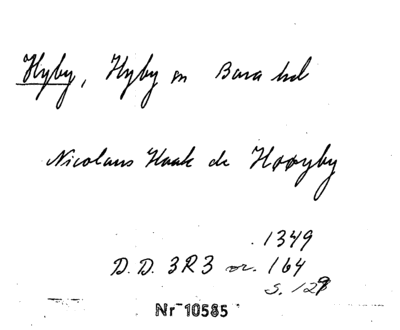 Hyby, Hyby sn Bara hd
Nicolaus Haak de Høøyby
1349
D. D. 3R3 nr. 164
s. 129
Nr 10585